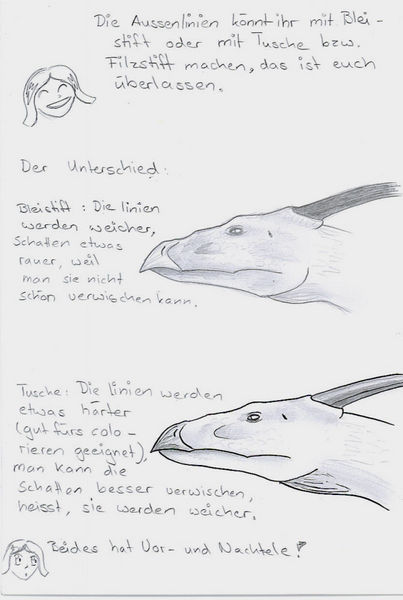 Die Aussenlinien könnt ihr mit Blei-
stift oder mit Tusche bzw.
Filzstift machen, das ist euch
überlassen.
Der Unterschied:
Bleistift: Die linien
werden weicher,
Schatten etwas
rauer, weil
man sie nicht
schön verwischen kann.
Tusche: Die linien werden
etwas härter
(gut fürs colo-
rieren geeignet),
man kann die
Schatten besser verwischen,
heisst, sie werden weicher.
Beides hat Vor- und Nachtele!